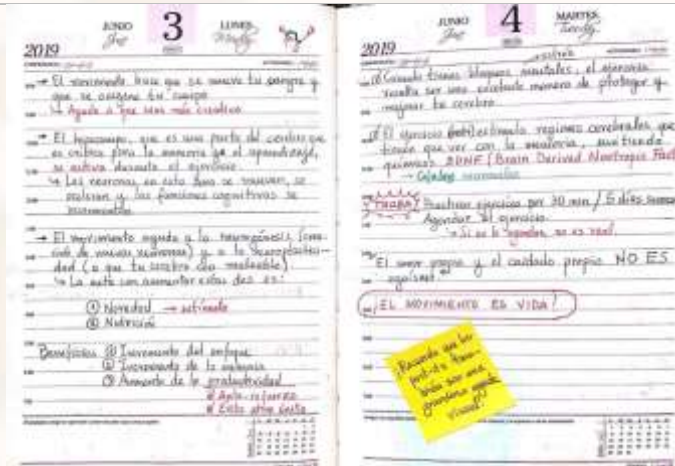 JUNIO
3
LUNES
2019
→ El movimiento hace que se mueva tu sangre y
que se oxigene tu cuerpo.
↳ Ayuda a que seas más creativo
→ El hipocampo, que es una parte del cerebro que
es crítica para la memoria y el aprendizaje,
se activa durante el ejercicio.
↳ Las neuronas en esta área se mueven, se
y las funciones cognitivas se
→ El movimiento ayuda a la neurogénesis
de nuevas neuronas) y a la
dad (a que tu cerebro sea maleable)
↳ La meta con aumentar estas dos es:
① Novedad → estímulo
② Nutrición
Beneficios ① Incremento del enfoque
② Incremento de la memoria
③ Aumento de la productividad
JUNIO
4
MARTES
2019
Cuando tienes bloqueos mentales, el ejercicio
resulta ser una excelente manera de proteger y
mejorar tu cerebro.
El ejercicio estimula regiones cerebrales que
tienen que ver con la memoria,
químicos BDNF (Brain Derived Neurotropic Fact
TAREA: Practicar ejercicio por 30 min / 5 días
Agendar el ejercicio.
↳ Si no lo agendas, no es real.
El amor propio y el cuidado propio NO ES
egoísmo
¡EL MOVIMIENTO ES VIDA!
Recuerda que los
post-its tam-
bién son una
grandiosa ayuda
visual